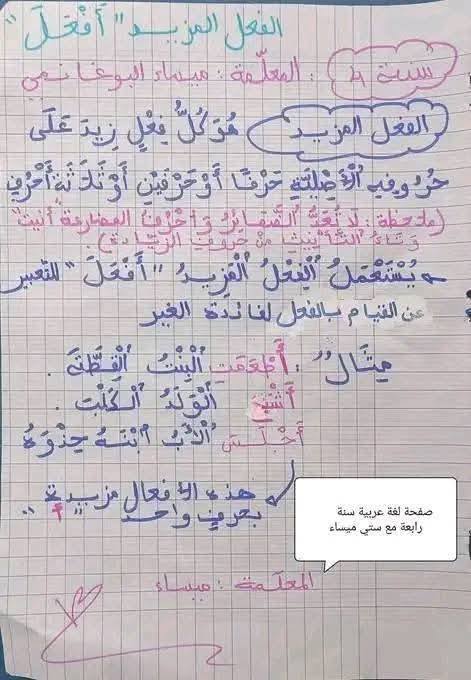 الفعل المزيد "أَفْعَلَ"
سنة 4 : المعلّمة : ميساء البوغانمي
الفعل المزيد هُوَ كُلُّ فِعْلٍ زِيدَ عَلَى
حُرُوفِهِ الْأَصْلِيَّةِ حَرْفًا أَوْ حَرْفَيْنِ أَوْ ثَلَاثَةَ أَحْرُفٍ
(ملاحظة : لَا تُعَدُّ الضَّمَائِرُ وَأَحْرُفُ المضارعة أنيت
وَتَاءُ التَّأْنِيثِ مِنْ حروفِ الزِّيَادَة).
يُسْتَعْمَلُ الْفِعْلُ الْمَزِيدُ "أَفْعَلَ" للتعبير
عن القيام بالفعل لفائدة الغير
مِثَال : أَطْعَمَتِ الْبِنْتُ الْقِطَّةَ .
أَشْبَعَ الْوَلَدُ الْكَلْبَ .
أَجْلَسَ الْأَبُ ابْنَهُ حِذْوَهُ
هذه الأفعال مزيدة
بحرف واحد "أ"
صفحة لغة عربية سنة
رابعة مع ستي ميساء
المعلّمة : ميساء